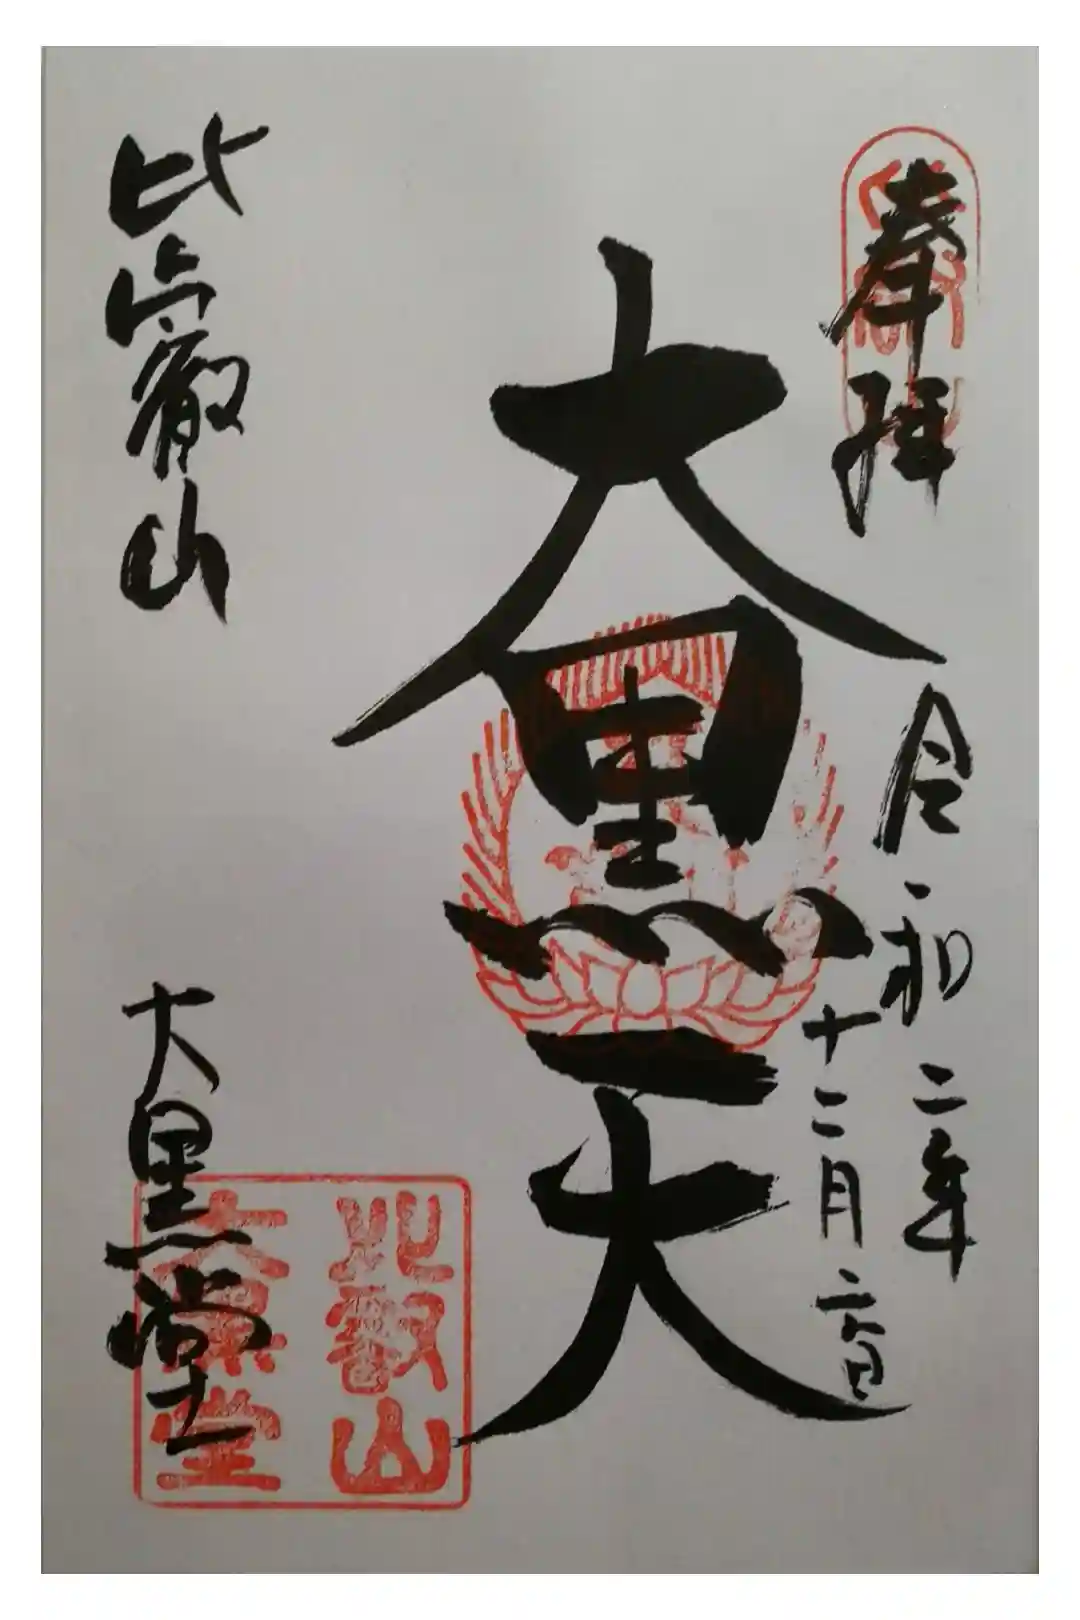 奉拝
令和二年
十二月二六日
大黒天
比叡山
大黒堂
比叡山
大黒堂